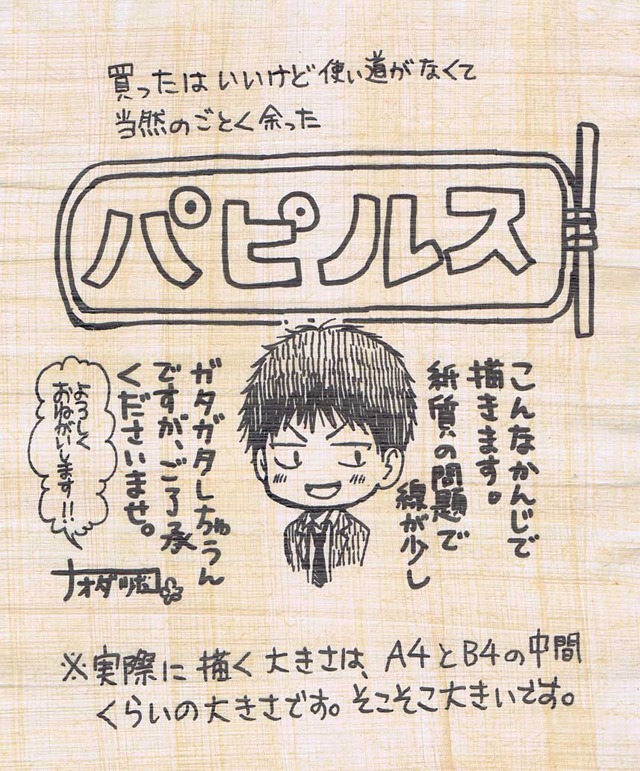 買ったはいいけど使い道がなくて
当然のごとく余った
パピルス
こんなかんじで
描きます。
紙質の問題で
線が少し
ガタガタしちゃうん
ですが、ご了承
くださいませ。
よろしく
おねがいします!!
ナオダツボコ
※実際に描く大きさは、A4とB4の中間
くらいの大きさです。そこそこ大きいです。